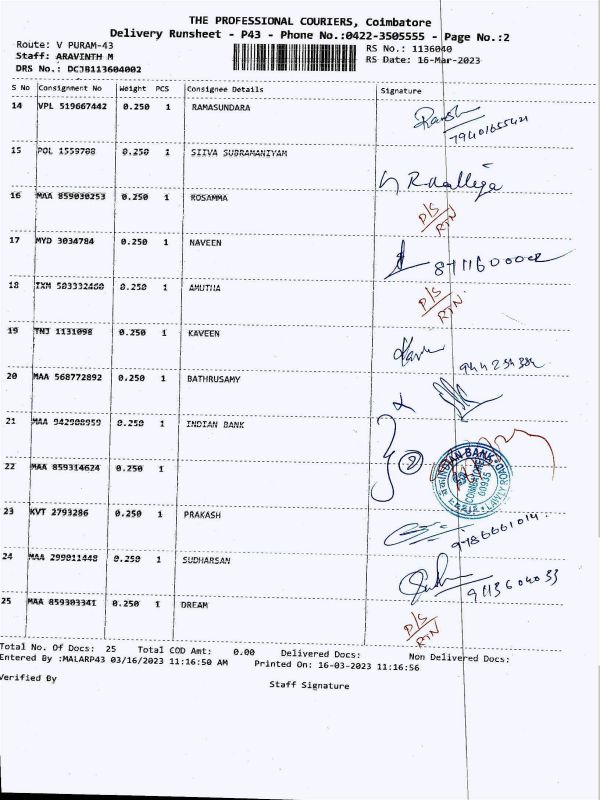 THE PROFESSIONAL COURIERS, Coimbatore
Delivery Runsheet - P43 - Phone No.:0422-3505555 - Page No.:2
Route: V PURAM-43
RS No.: 1136040
Staff: ARAVINTH M
RS Date: 16-Mar-2023
DRS No.: DCJB113604002
S No Consignment No Weight PCS Consignee Details Signature
14 VPL 519667442 0.250 1 RAMASUNDARA
15 POL 1559708 0.250 1 SIIVA SUBRAMANIYAM
16 MAA 859030253 0.250 1 ROSAMMA
P/S
RTN
17 MYD 3034784 0.250 1 NAVEEN
18 IXM 503332460 0.250 1 AMUTHA
P/S
RTN
19 TNJ 1131098 0.250 1 KAVEEN
20 MAA 568772892 0.250 1 BATHRUSAMY
21 MAA 942908959 0.250 1 INDIAN BANK
2
INDIAN BANK
22 MAA 859314624 0.250 1
23 KVT 2793286 0.250 1 PRAKASH
9786661014
24 MAA 299011448 0.250 1 SUDHARSAN
25 MAA 859303341 0.250 1 DREAM
P/S
RTN
Total No. Of Docs: 25 Total COD Amt: 0.00 Delivered Docs: Non Delivered Docs:
Entered By :MALARP43 03/16/2023 11:16:50 AM Printed On: 16-03-2023 11:16:56
Verified By Staff Signature